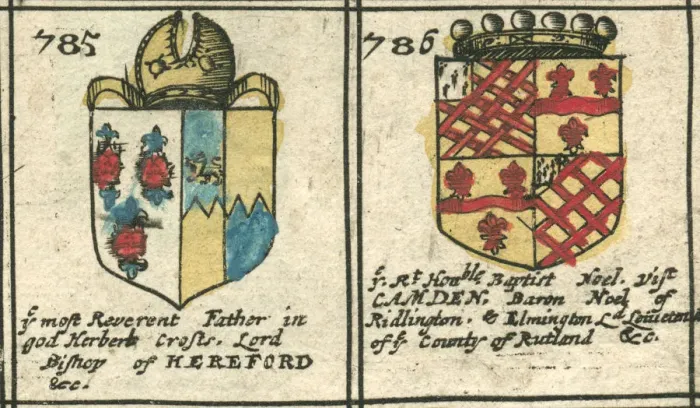 785
ye most Reverent Father in
god Herbert Crofts. Lord
Bishop of HEREFORD
&c.
786
ye. Rt Honble Baptist Noel. Vist
CAMDEN. Baron Noel of
Ridlington. & Elmington Ld
of ye County of Rutland &c.